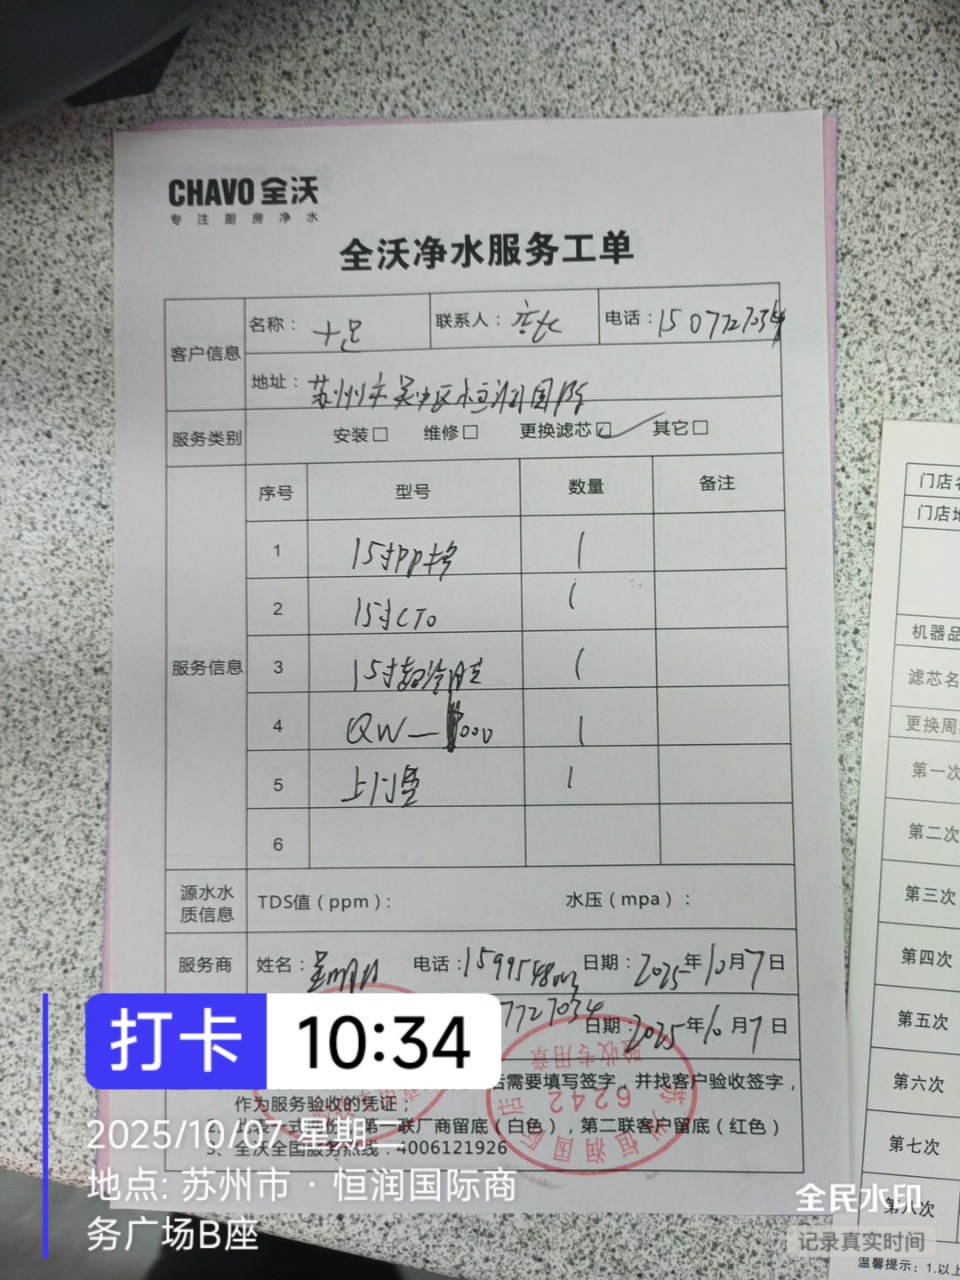 CHAVO 全沃
专注厨房净水
全沃净水服务工单
客户信息
名称： 十足
联系人： 店长
电话：15077727034
地址： 苏州市吴中区恒润国际
服务类别
安装□ 维修□ 更换滤芯☑ 其它□
服务信息
序号 型号 数量 备注
1 15寸PP棉 1
2 15寸CTO 1
3 15寸超滤膜 1
4 QW— 000 1
5 上门费 1
6
源水水质信息
TDS值（ppm）： 水压（mpa）：
服务商
姓名： 电话： 日期：2025年10月7日
7727034 日期：2025年10月7日
后需要填写签字，并找客户验收签字，
作为服务验收的凭证；
第一联厂商留底（白色），第二联客户留底（红色）
3、全沃全国服务热线：4006121926
验收专用章
6242
苏州恒润国际店
打卡 10:34
2025/10/07 星期二
地点: 苏州市 · 恒润国际商
务广场B座
全民水印
记录真实时间
门店
门店
机器品
滤芯名
更换周
第一次
第二次
第三次
第四次
第五次
第六次
第七次
第八次
温馨提示：1.以上